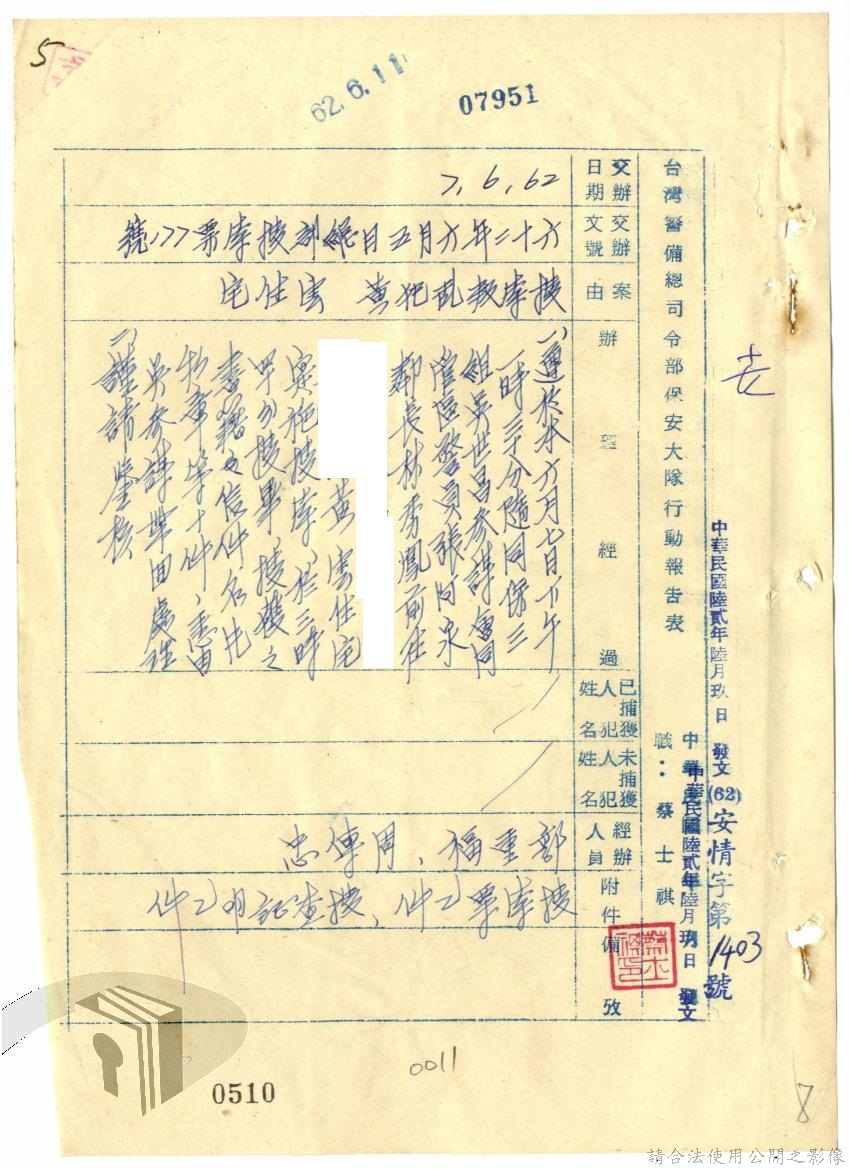 5
62.6.11
07951
中華民國陸貳年陸月玖日 發文(62)安情字第1403號
台灣警備總司令部保安大隊行動報告表
中華民國陸貳年陸月玖日 發文
職：蔡士祺
交辦日期
7,6,62
交辦文號
六十二年六月五日
搜索票177號
案由
搜索叛亂犯黃 雲住宅
辦理經過
一、遵於本六月七日下午
一時三十分隨同保三
組吳世昌參謀會同
管區警員張阿泉
鄰長林秀鳳前往
黃雲住宅
實施搜索，於三時
畢，搜獲之
書籍及信件名片
等十件，悉由
吳參謀帶回處理
二、謹請鑒核
已捕獲人犯姓名
未捕獲人犯姓名
經辦人員
鄒重福、周傳忠
附件
搜索票乙件、搜查證明乙件
備攷
0011
0510
8
請合法使用公開之影像